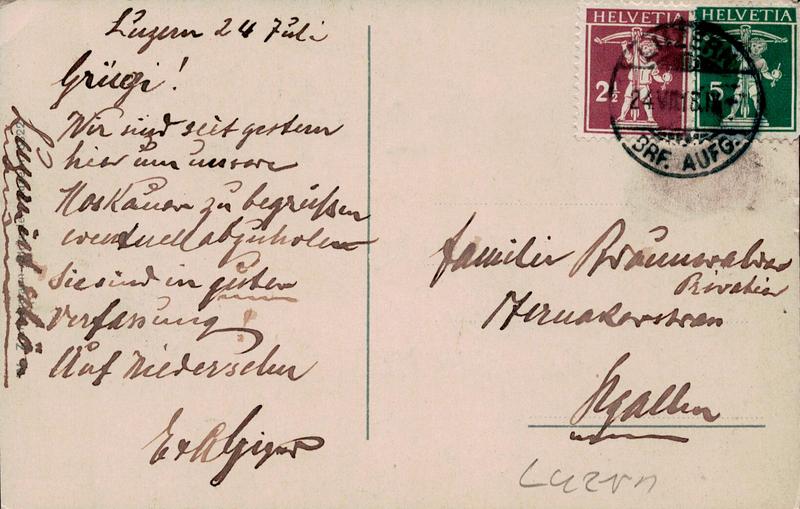 Luzern 24 Juli
Grüezi!
Wir sind seit gestern
hier um unsere
Moskauer zu begrüssen
eventuell abzuholen
Sie sind in guter
Verfassung!
Auf Wiedersehn
E & A Giger
Luzern ist schön
HELVETIA
2½
HELVETIA
5
LUZERN
24.VII.
BRF. AUFG.
Familie Braunwalder
Privatier
Sgallen
Luzern